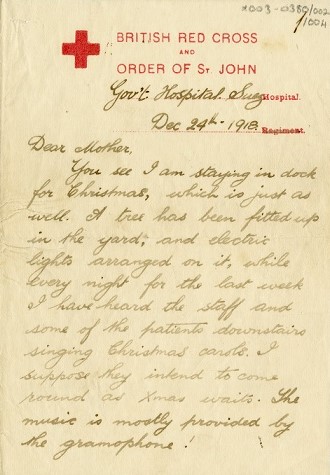 x003-0380/002
1/004
BRITISH RED CROSS
AND
ORDER OF ST. JOHN
Gov't. Hospital. Suez Hospital.
Dec 24th 1918. Regiment.
Dear Mother,
You see I am staying in dock
for Christmas, which is just as
well. A tree has been fitted up
in the yard, and electric
lights arranged on it, while
every night for the last week
I have heard the staff and
some of the patients downstairs
singing Christmas carols. I
suppose they intend to come
round as Xmas waits. The
music is mostly provided by
the gramophone!